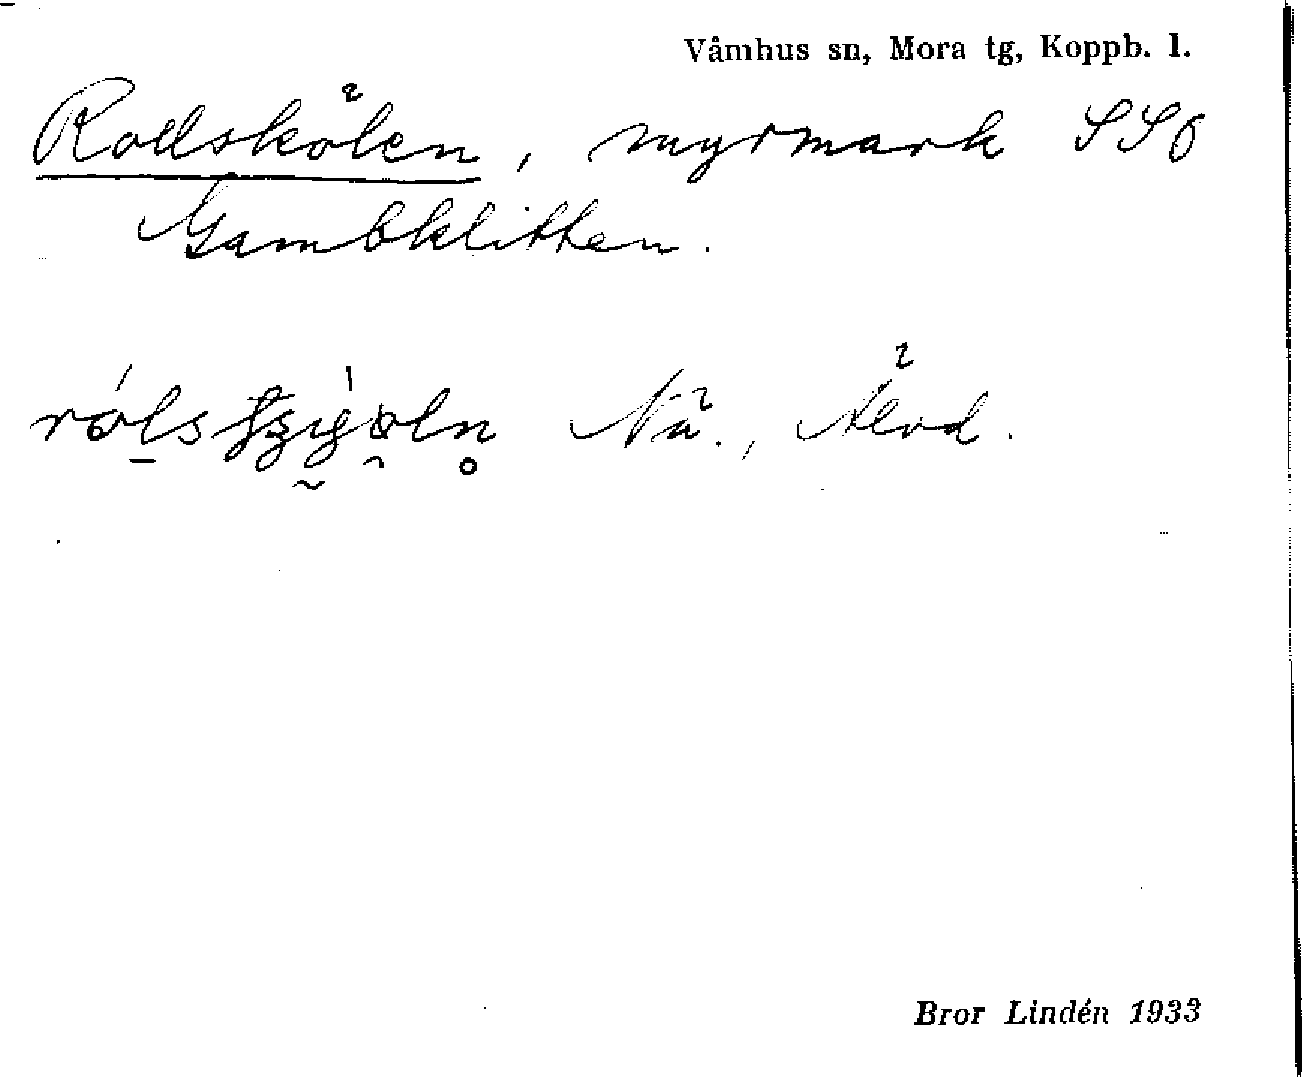 Våmhus sn, Mora tg, Koppb. l.
Rollskölen, myrmark SSO
Gambklitten.
Nä., Älvd.
Bror Lindén 1933